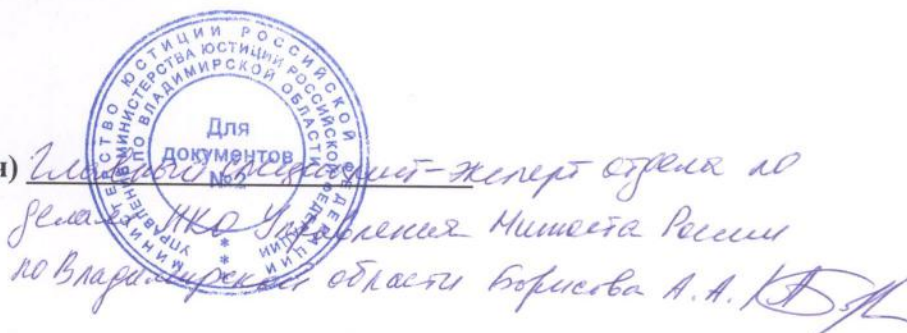 МИНИСТЕРСТВО ЮСТИЦИИ РОССИЙСКОЙ ФЕДЕРАЦИИ
УПРАВЛЕНИЕ МИНИСТЕРСТВА ЮСТИЦИИ РОССИЙСКОЙ ФЕДЕРАЦИИ
ПО ВЛАДИМИРСКОЙ ОБЛАСТИ
* *
Для
документов
№2
) Главный специалист-эксперт отдела по
делам НКО Управления Минюста России
по Владимирской области Борисова А. А.